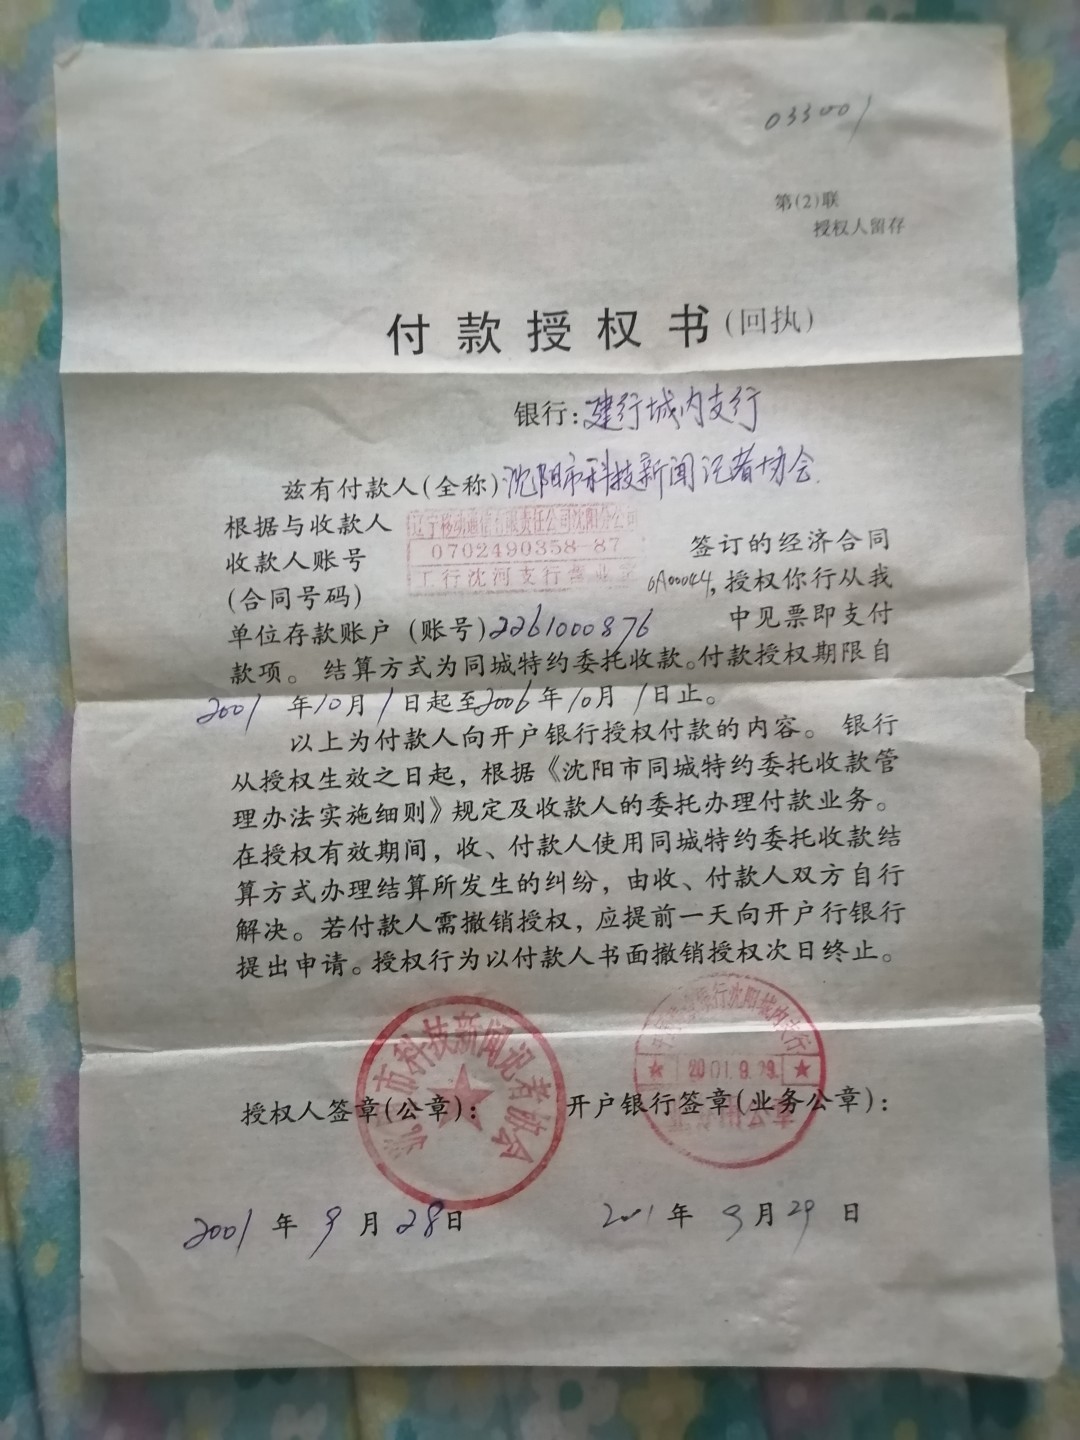 033001
第(2)联
授权人留存
付款授权书(回执)
银行:建行城内支行
兹有付款人(全称)沈阳市科技新闻记者协会.
根据与收款人
辽宁移动通信有限责任公司沈阳分公司
收款人账号
0702490358-87
签订的经济合同
工行沈河支行营业
(合同号码)
0A00044,授权你行从我
单位存款账户(账号)2261000876 中见票即支付
款项。结算方式为同城特约委托收款。付款授权期限自
2001年10月1日起至2006年10月1日止。
以上为付款人向开户银行授权付款的内容。银行
从授权生效之日起,根据《沈阳市同城特约委托收款管
理办法实施细则》规定及收款人的委托办理付款业务。
在授权有效期间,收、付款人使用同城特约委托收款结
算方式办理结算所发生的纠纷,由收、付款人双方自行
解决。若付款人需撤销授权,应提前一天向开户行银行
提出申请。授权行为以付款人书面撤销授权次日终止。
沈阳市科技新闻记者协会
银行沈阳城内支行
2001.9.29
授权人签章(公章): 开户银行签章(业务公章):
2001年9月28日 2001年9月29日